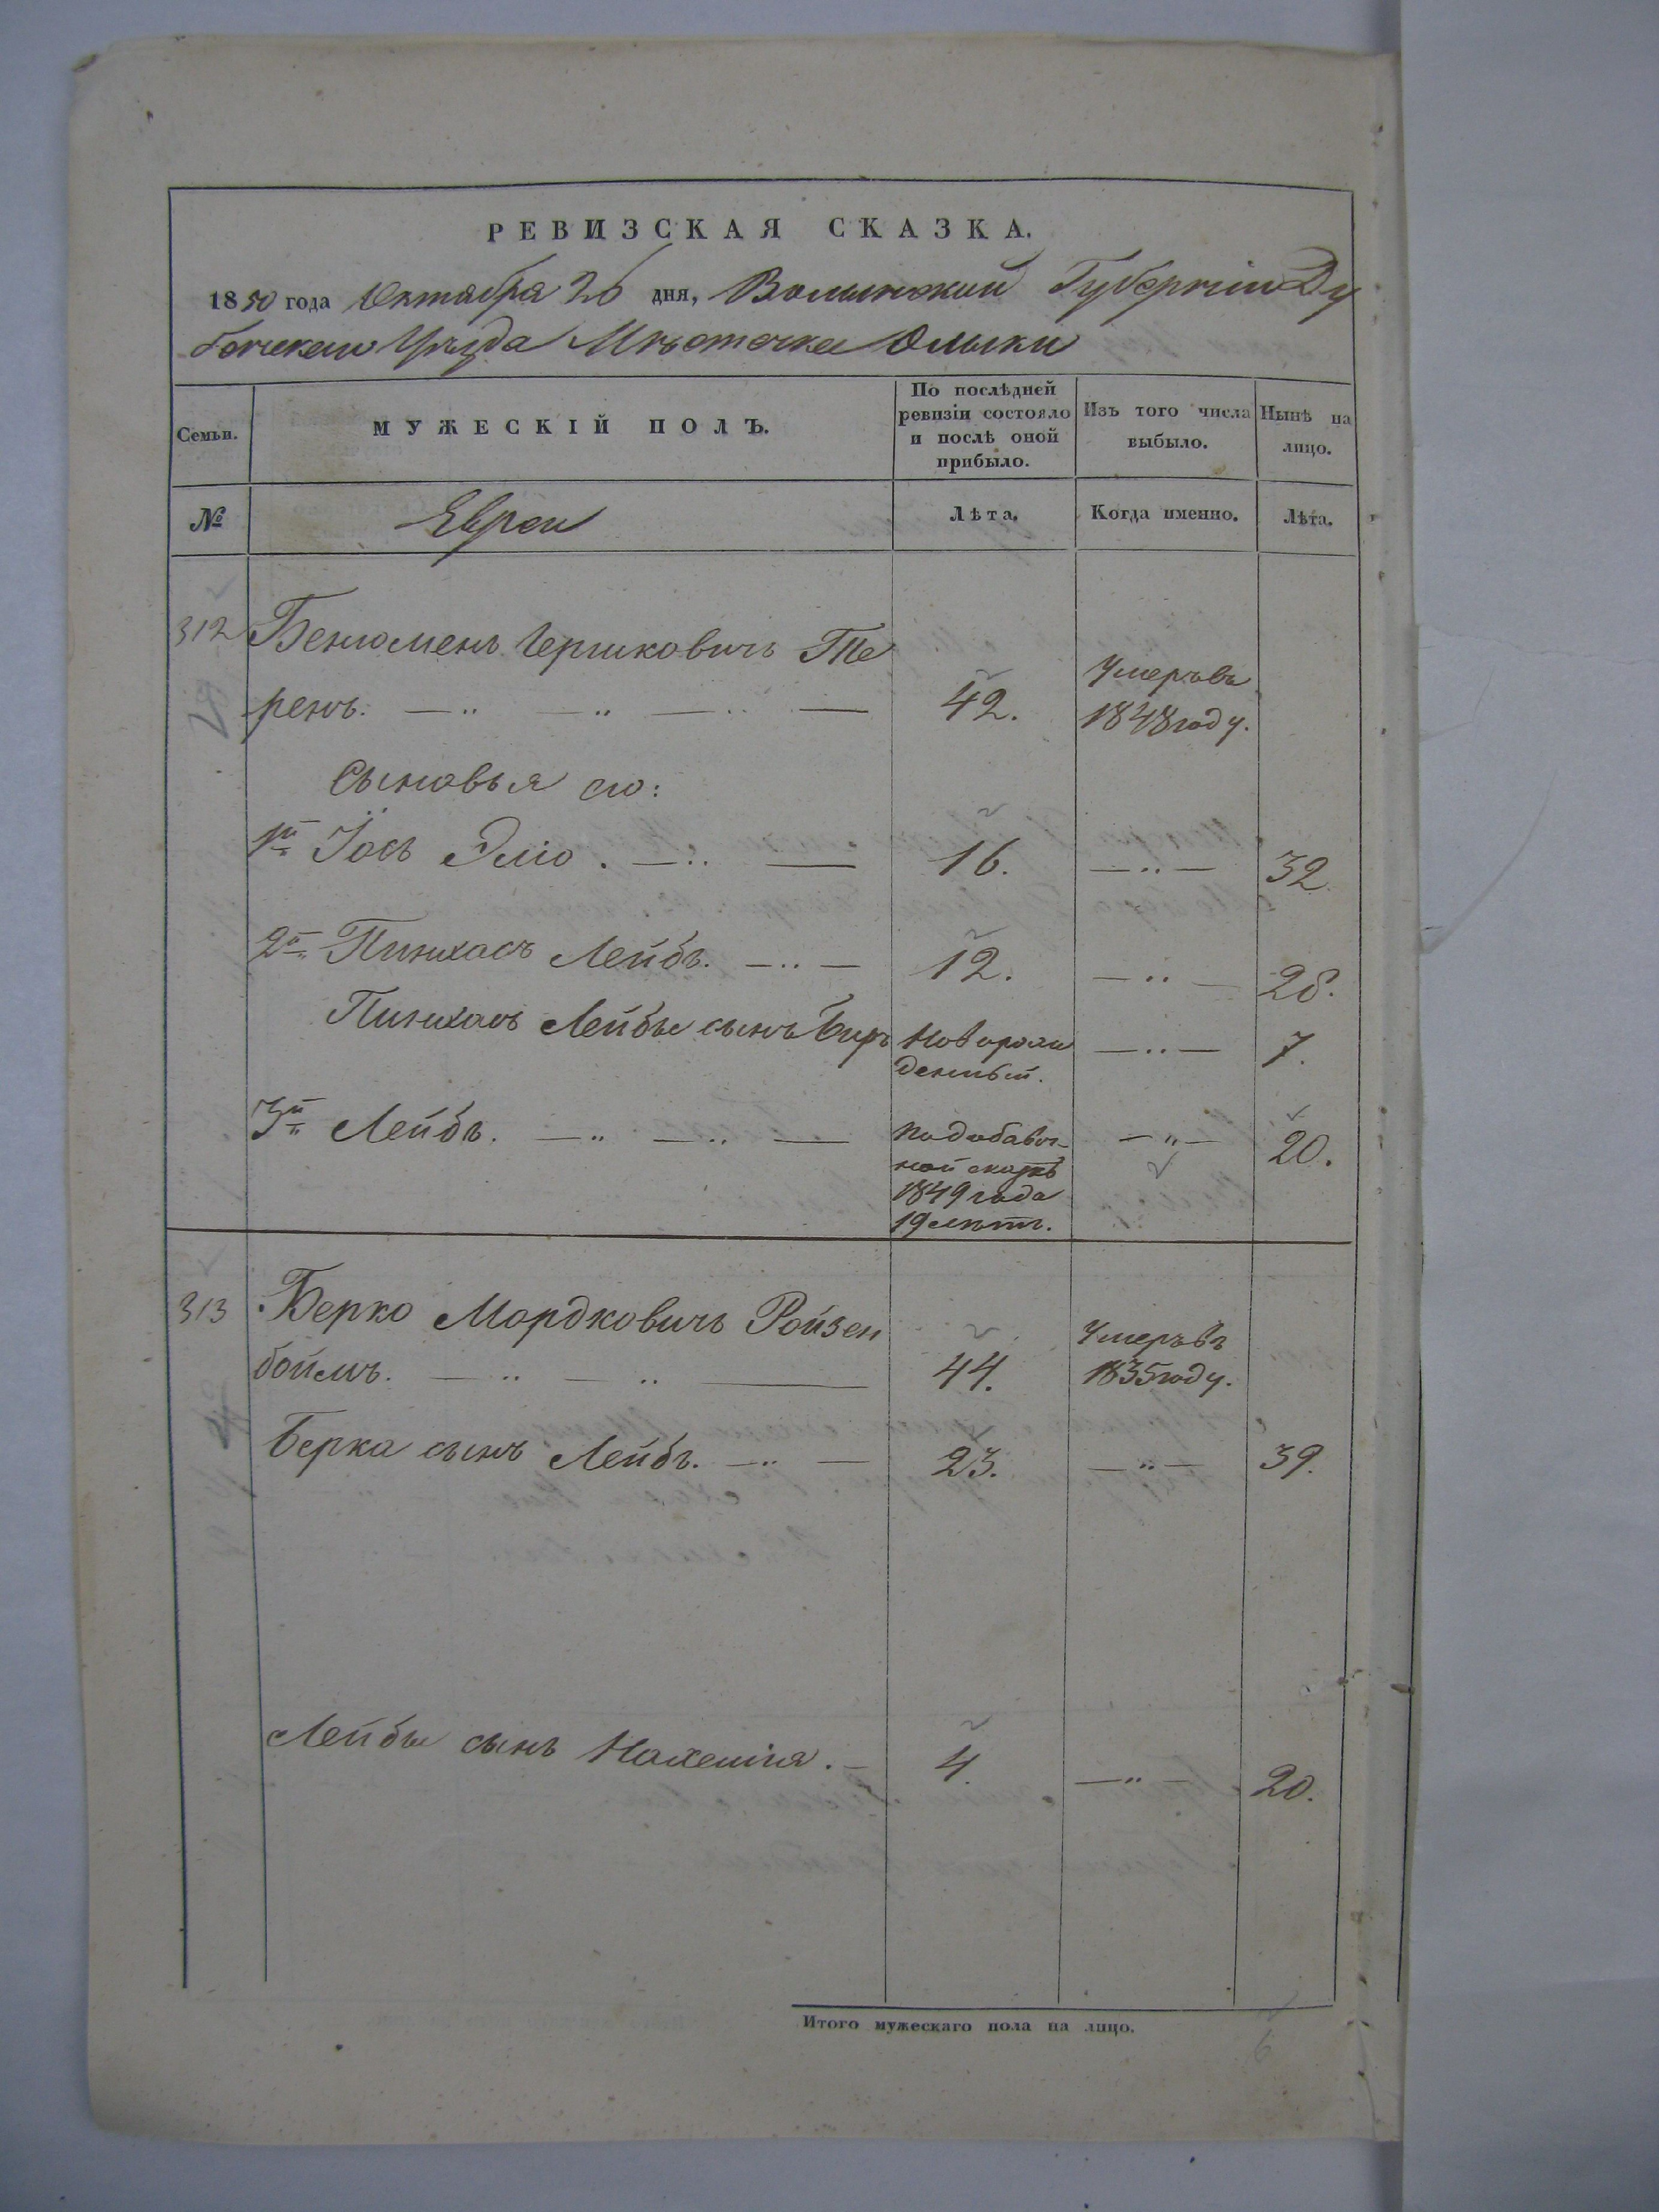 РЕВИЗСКАЯ СКАЗКА.
1850 года Октабра 26 дня, Волынской Губерніи Ду
бенскаго Уѣзда Мѣстечка Олыки
Семьи.
МУЖЕСКІЙ ПОЛЪ.
По послѣдней ревизіи состояло и послѣ оной прибыло.
Изъ того числа выбыло.
Нынѣ на лицо.
№
Евреи
Лѣта.
Когда именно.
Лѣта.
312 Бенюменъ Гершковичъ Те
ренъ. 42. Умеръ въ 1848 году.
Сыновья его:
1й Іось Эліо. 16. 32
2й Пинхасъ Лейбъ. 12. 28.
Пинхаса Лейбы сынъ Беръ Новорож
денный. 7.
3й Лейбъ. По добавоч-
ной сказкѣ
1849 года
19 лѣтъ. 20.
313 Берко Мордковичъ Ройзен
боймъ. 44. Умеръ въ 1835 году.
Берка сынъ Лейбъ. 23. 39.
Лейбы сынъ Нахемія. 4. 20.
Итого мужескаго пола на лицо.
6